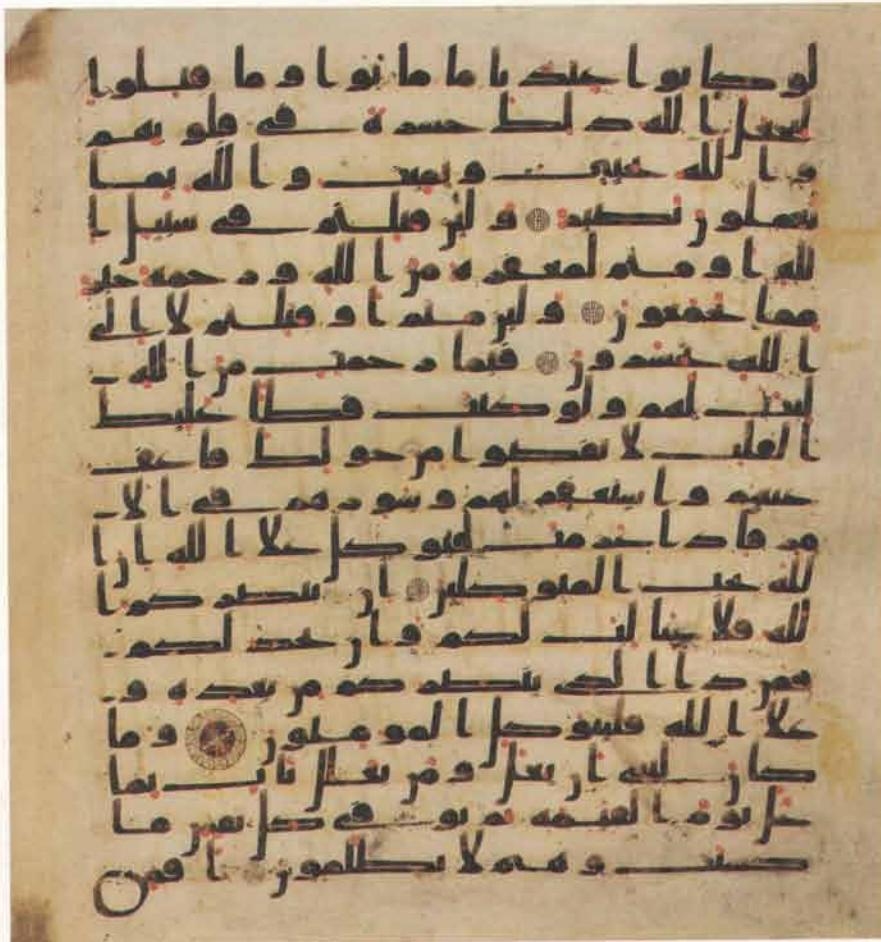 لو كانوا عندنا ما ماتوا وما قتلوا
ليجعل الله ذلك حسرة في قلوبهم
والله يحيي ويميت والله بما
تعملون بصير ولئن قتلتم في سبيل ا
لله او متم لمغفرة من الله ورحمة خير
مما يجمعون ولئن متم او قتلتم لالى
الله تحشرون فبما رحمة من الله
لنت لهم ولو كنت فظا غليظ
القلب لانفضوا من حولك فاعف
عنهم واستغفر لهم وشورهم في الا
مر فاذا عزمت فتوكل على الله ان ا
لله يحب المتوكلين ان ينصركم ا
لله فلا غالب لكم وان يخذلكم
فمن ذا الذي ينصركم من بعده و
على الله فليتوكل المومنون وما
كان لنبي ان يغل ومن يغلل يات بما
غل يوم القيمة ثم توفى كل نفس ما
كسبت وهم لا يظلمون افمن